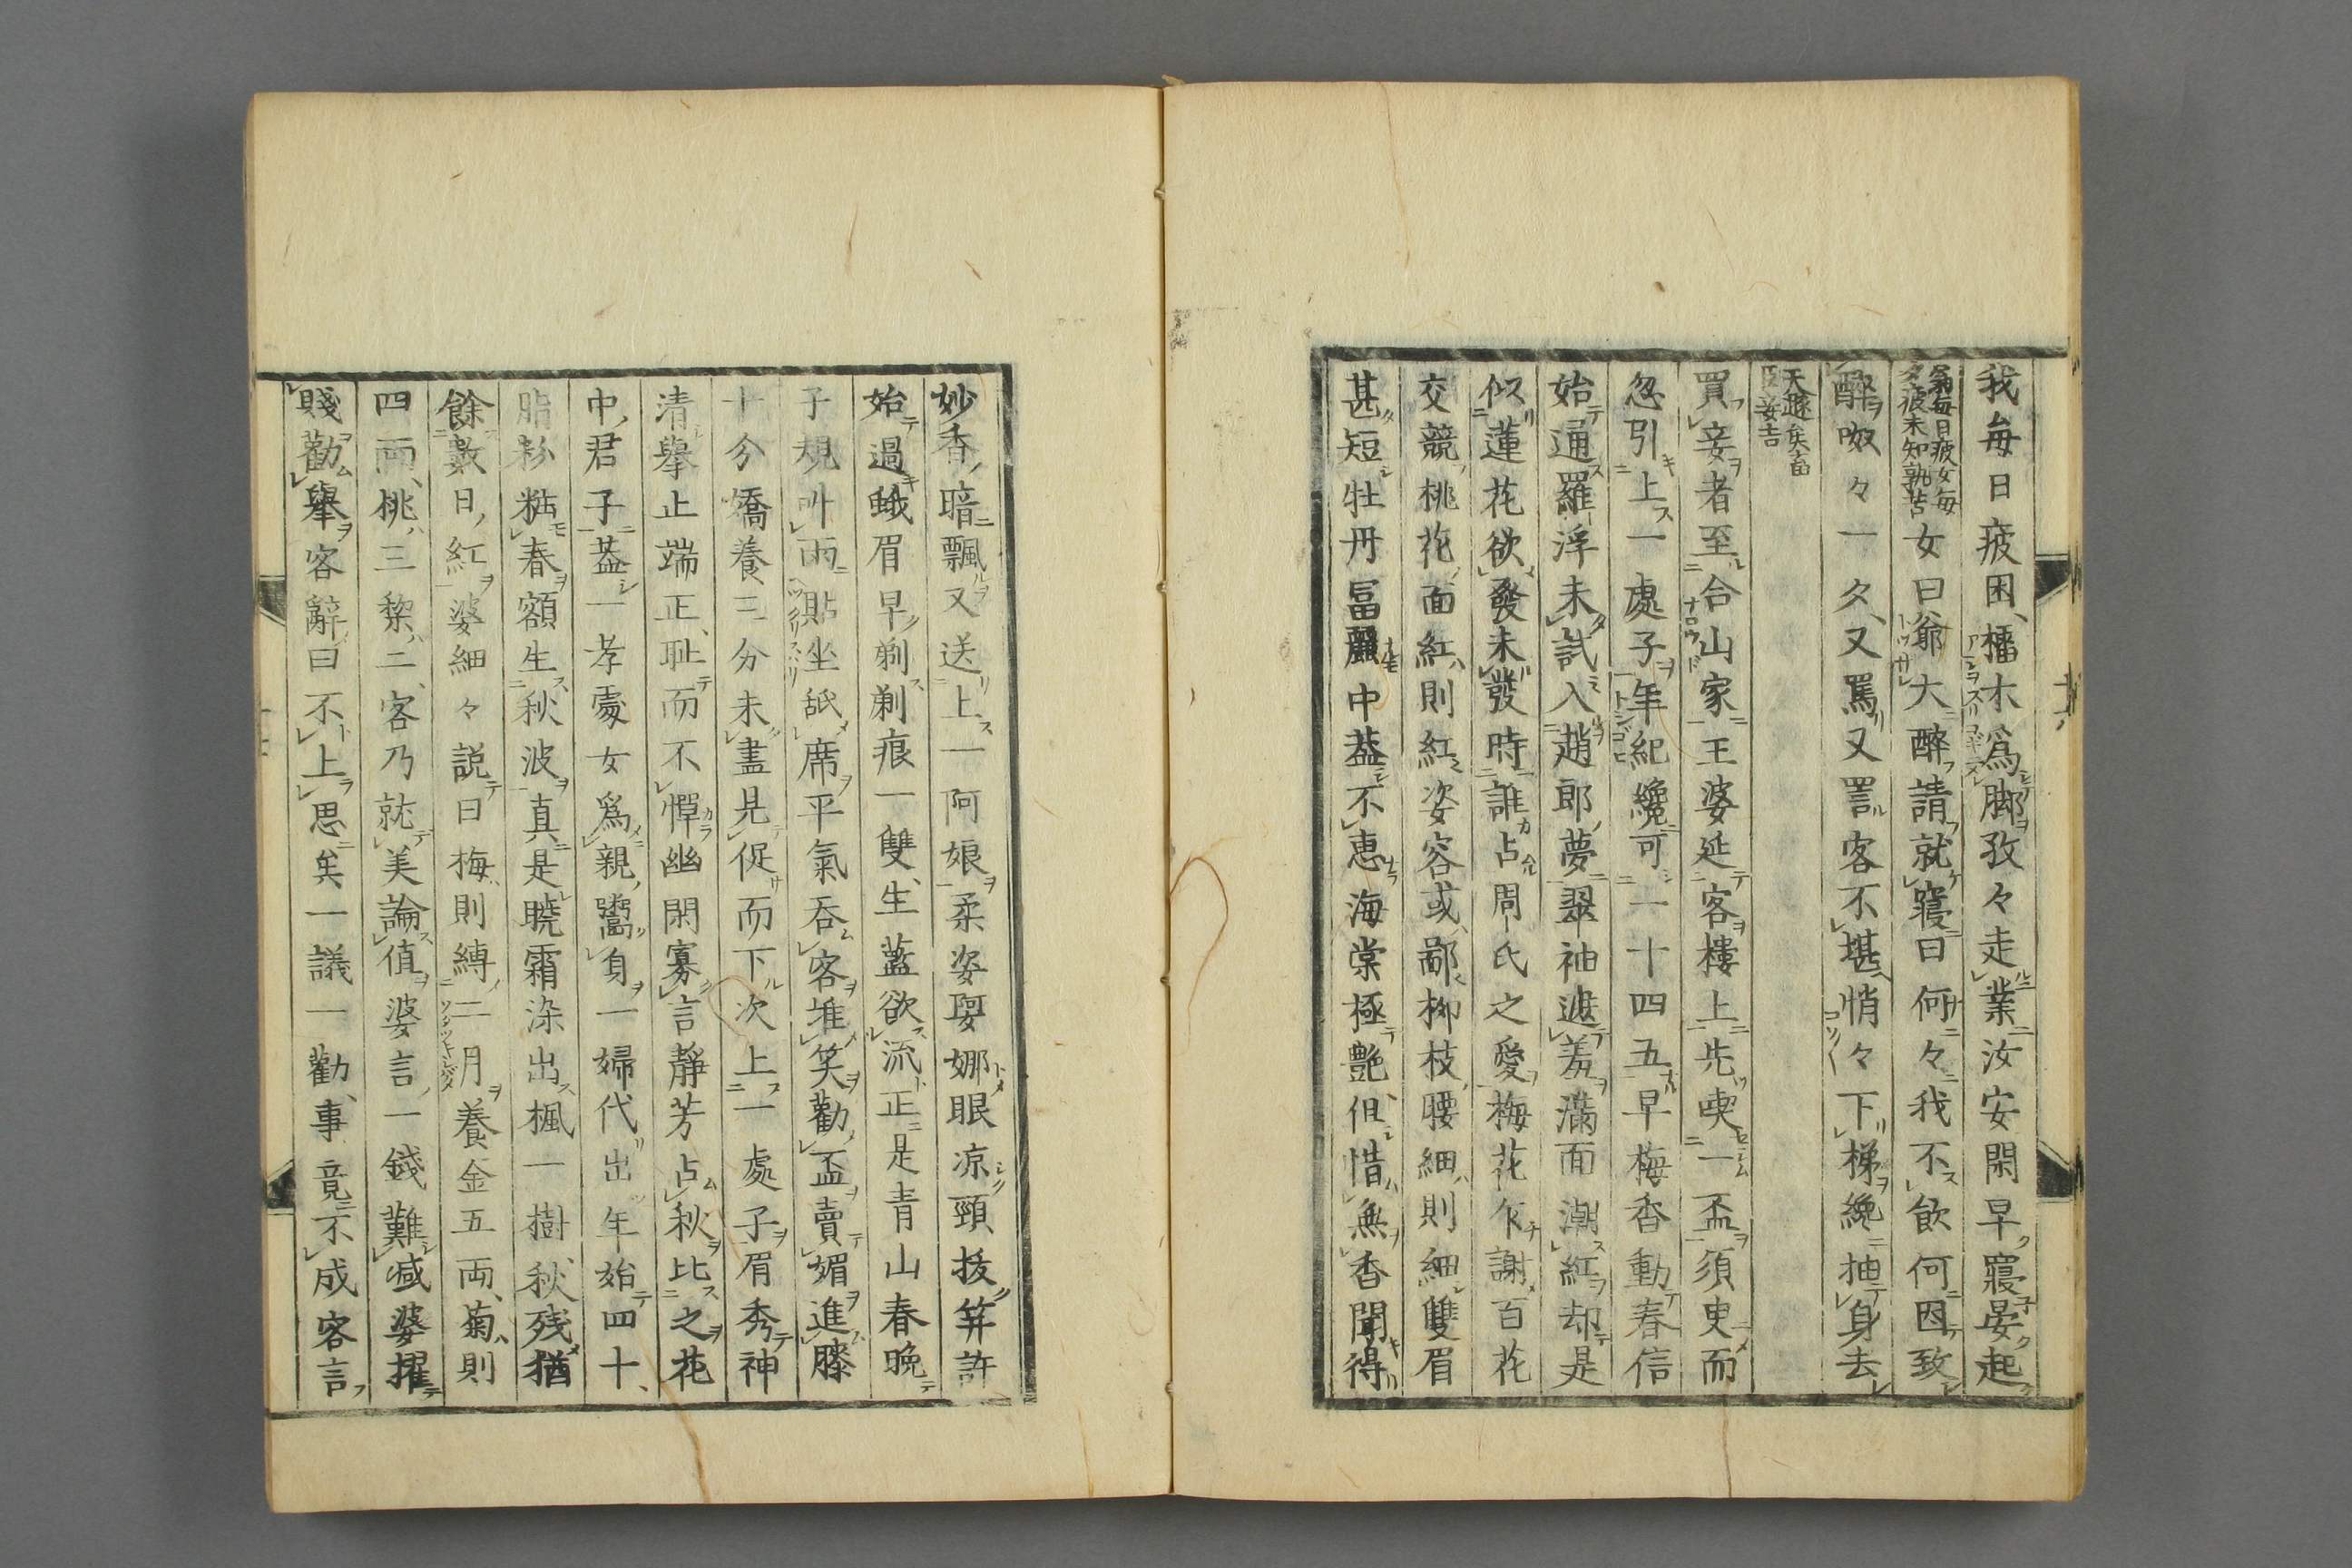 我毎日疲困、擂木爲脚孜々走業汝安閑早寢晏起
翁毎日疲女毎
夕疲未知孰苦
女曰爺大醉請就寢曰何々我不飲何因致
醉呶々一夕、又罵又詈客不堪悄々下梯纔抽身去
天趣矣畜
臣妾吉
買妾者至合山家王婆延客樓上先喫一盃須臾而
忽引上一處子年紀纔可一十四五早梅香動春信
始通羅浮未試入趙郎夢翠袖遮羞滿面潮紅却是
似蓮花欲發未發時誰占周氏之愛梅花乍謝百花
交競桃花面紅則紅姿容或鄙柳枝腰細則細雙眉
甚短牡丹富麗中葢不惠海棠極艶但惜無香聞得
妙香暗飄又送上一阿娘柔姿婭娜眼凉頸拔笄許
始過蛾眉早剃剃痕一雙生藍欲流正是青山春晩
子規叫雨貼坐舐席平氣呑客堆笑勸盃賣媚進膝
十分嬌養三分未盡見促而下次上一處子眉秀神
清擧止端正、耻而不憚幽閑寡言靜芳占秋比之花
中君子葢一孝處女爲親鬻身一婦代出年始四十、
脂粉粘春額生秋波真是曉霜染出楓一樹秋殘猶
餘數日紅婆細々説曰梅則縛二月養金五両菊則
四両桃三黎二客乃就美論値婆言一錢難减婆擢
賤勸擧客辭曰不上思矣一議一勸、事竟不成客言